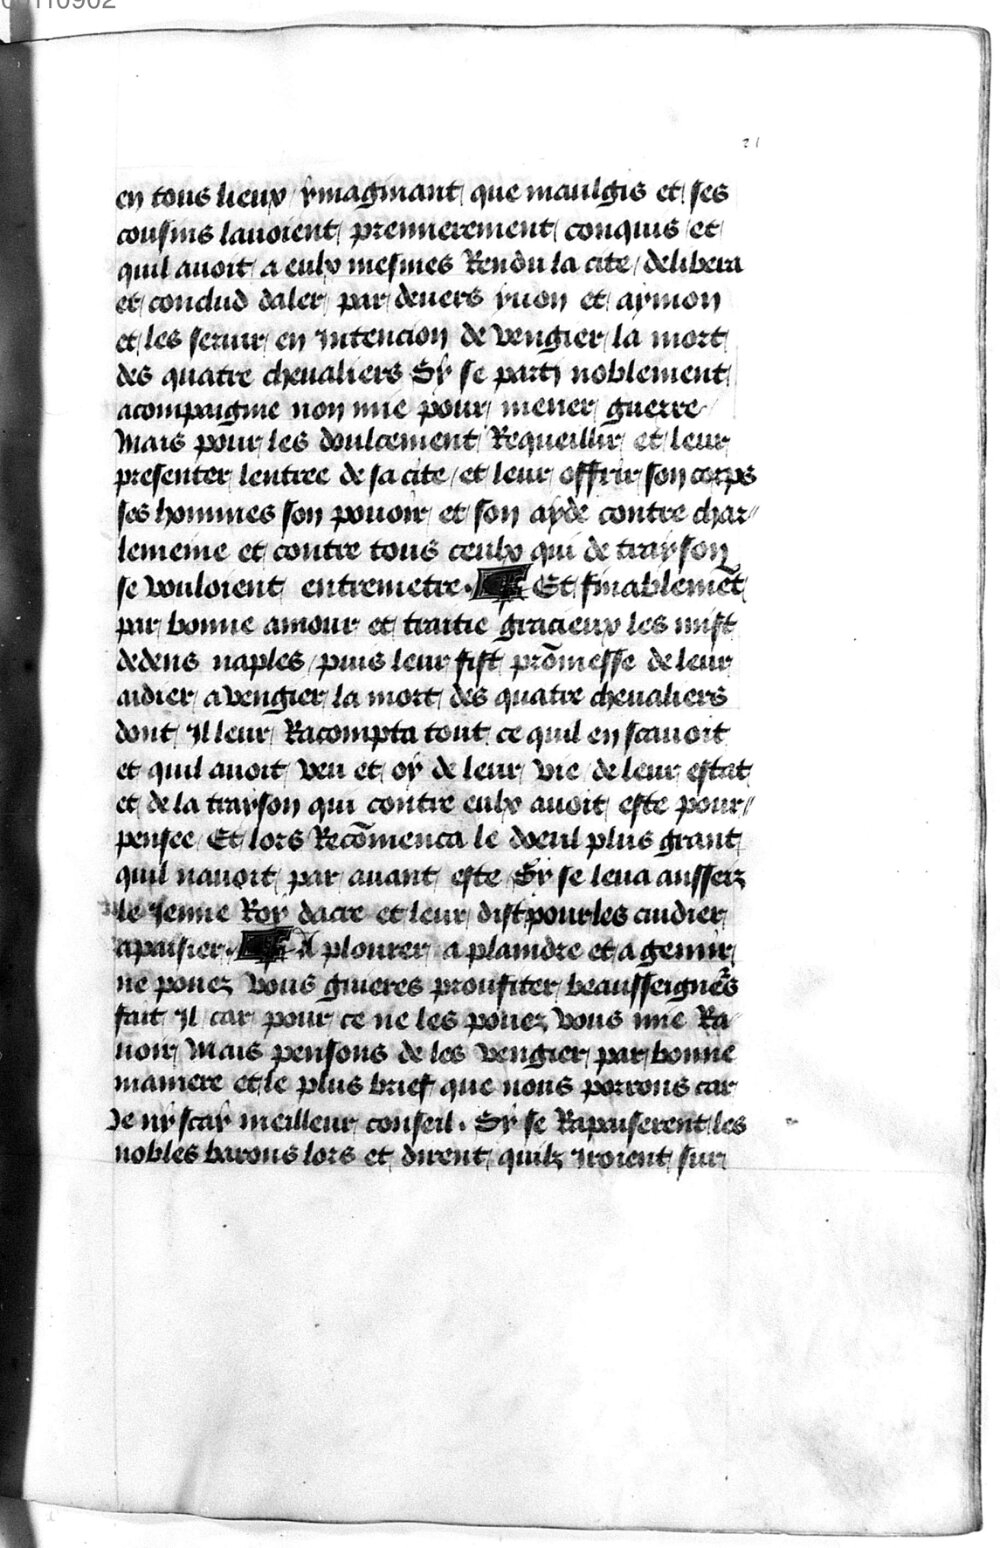 21
en tous lieux ymaginant que maulgis et ses
cousins lauoient premierement conquis et
quil auoit a eulx mesmes Rendu la cite / delibera
et conclud daler par deuers yuon et aymon
et les seruir en Intencion de vengier la mort
des quatre cheualiers Sy se parti noblement
acompaignie non mie pour mener guerre
Mais pour les doulcement Requeillir et leur
presenter lentree de sa cite / et leur offrir son corps
ses hommes son pouoir et son ayde contre char-
lemeine et contre tous ceulx qui de trayson
se vouloient entremetre. Et finablemẽt
par bonne amour et traitie gracieux les mist
dedens naples / puis leur fist prõmesse de leur
aidier a vengier la mort des quatre cheualiers
dont Il leur Racompta tout ce quil en scauoit
et quil auoit veu et oy de leur vie / de leur estat
et de la trayson qui contre eulx auoit este pour-
pensee / Et lors Recõmenca le doeul plus grant
quil nauoit par auant este Sy se leua aussez
le Jenne Roy dacre et leur dist pour les cuidier
apaisier. A plourer a plaindre et a gemir
ne pouez vous guieres proufiter beausseignẽs
fait Il car pour ce ne les pouez vous mie Ra
uoir Mais pensons de les vengier par bonne
maniere et le plus brief que nous porrons car
Je ny scay meilleur conseil. Sy se Rapaiserent les
nobles barons lors et dirent quilz Iroient sur